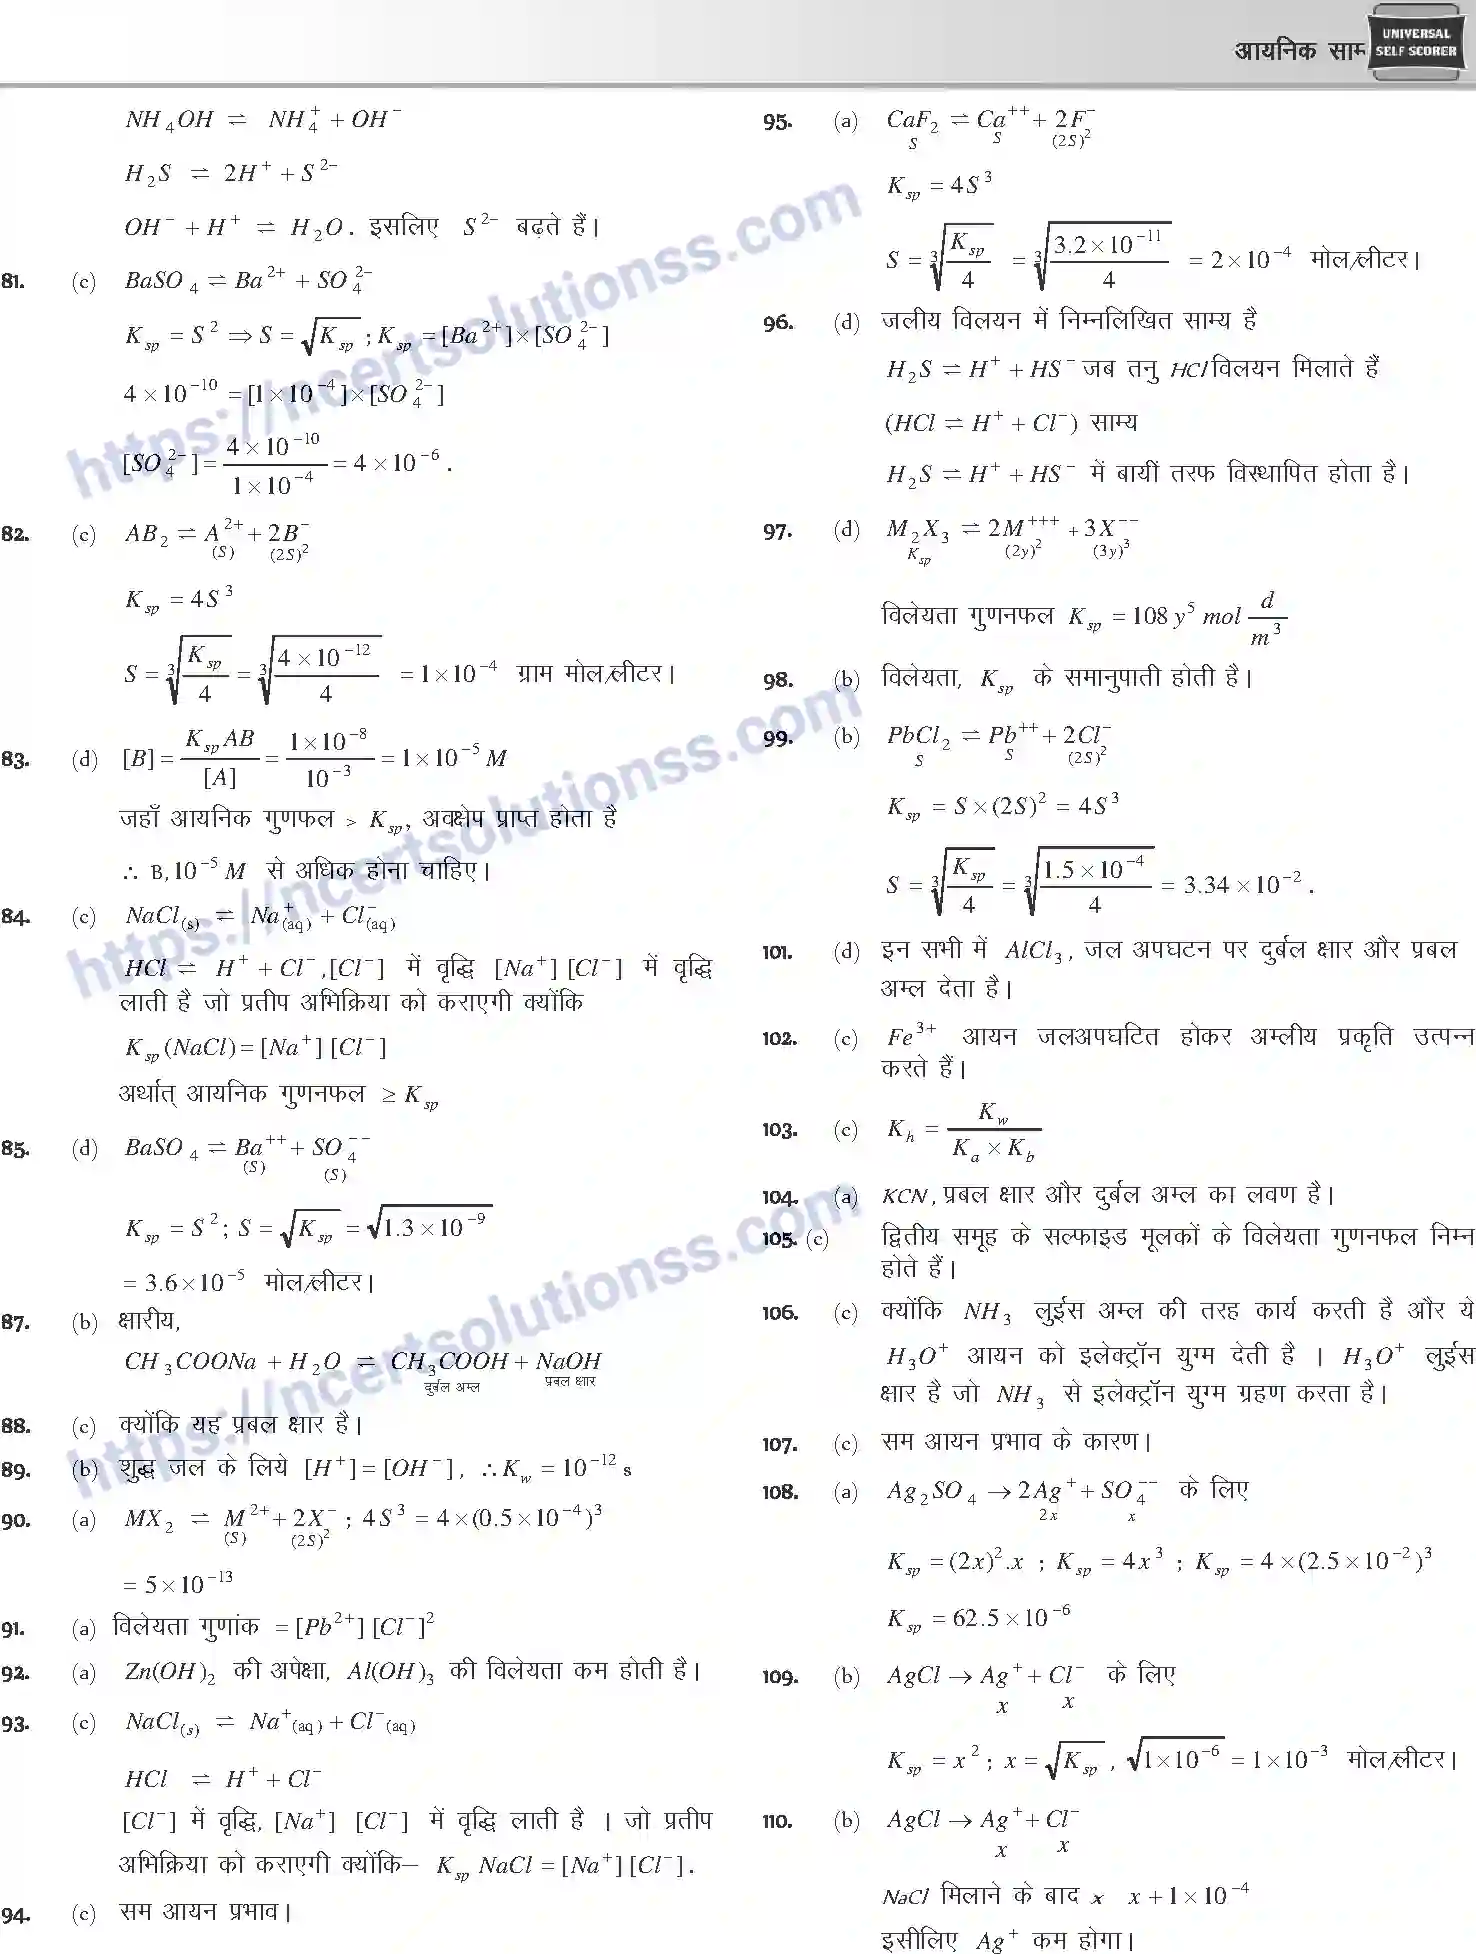 आयनिक साम
UNIVERSAL
SELF SCORER
NH₄OH ⇌ NH₄⁺ + OH⁻
H₂S ⇌ 2H⁺ + S²⁻
OH⁻ + H⁺ ⇌ H₂O. इसलिए S²⁻ बढ़ते हैं।
81. (c) BaSO₄ ⇌ Ba²⁺ + SO₄²⁻
K_sp = S² ⇒ S = √K_sp ; K_sp = [Ba²⁺]×[SO₄²⁻]
4×10⁻¹⁰ = [1×10⁻⁴]×[SO₄²⁻]
[SO₄²⁻] = (4×10⁻¹⁰)/(1×10⁻⁴) = 4×10⁻⁶.
82. (c) AB₂ ⇌ A²⁺ + 2B⁻
(S) (2S)²
K_sp = 4S³
S = ∛(K_sp/4) = ∛((4×10⁻¹²)/4) = 1×10⁻⁴ ग्राम मोल/लीटर।
83. (d) [B] = (K_sp AB)/[A] = (1×10⁻⁸)/(10⁻³) = 1×10⁻⁵ M
जहाँ आयनिक गुणफल > K_sp, अवक्षेप प्राप्त होता है
∴ B, 10⁻⁵ M से अधिक होना चाहिए।
84. (c) NaCl(s) ⇌ Na⁺(aq) + Cl⁻(aq)
HCl ⇌ H⁺ + Cl⁻, [Cl⁻] में वृद्धि [Na⁺] [Cl⁻] में वृद्धि
लाती है जो प्रतीप अभिक्रिया को कराएगी क्योंकि
K_sp (NaCl) = [Na⁺] [Cl⁻]
अर्थात् आयनिक गुणनफल ≥ K_sp
85. (d) BaSO₄ ⇌ Ba⁺⁺ + SO₄⁻⁻
(S) (S)
K_sp = S²; S = √K_sp = √(1.3×10⁻⁹)
= 3.6×10⁻⁵ मोल/लीटर।
87. (b) क्षारीय,
CH₃COONa + H₂O ⇌ CH₃COOH + NaOH
दुर्बल अम्ल प्रबल क्षार
88. (c) क्योंकि यह प्रबल क्षार है।
89. (b) शुद्ध जल के लिये [H⁺] = [OH⁻], ∴ K_w = 10⁻¹² s
90. (a) MX₂ ⇌ M²⁺ + 2X⁻ ; 4S³ = 4×(0.5×10⁻⁴)³
(S) (2S)²
= 5×10⁻¹³
91. (a) विलेयता गुणांक = [Pb²⁺] [Cl⁻]²
92. (a) Zn(OH)₂ की अपेक्षा, Al(OH)₃ की विलेयता कम होती है।
93. (c) NaCl(s) ⇌ Na⁺(aq) + Cl⁻(aq)
HCl ⇌ H⁺ + Cl⁻
[Cl⁻] में वृद्धि, [Na⁺] [Cl⁻] में वृद्धि लाती है । जो प्रतीप
अभिक्रिया को कराएगी क्योंकि– K_sp NaCl = [Na⁺] [Cl⁻].
94. (c) सम आयन प्रभाव।
95. (a) CaF₂ ⇌ Ca⁺⁺ + 2F⁻
S S (2S)²
K_sp = 4S³
S = ∛(K_sp/4) = ∛((3.2×10⁻¹¹)/4) = 2×10⁻⁴ मोल/लीटर।
96. (d) जलीय विलयन में निम्नलिखित साम्य है
H₂S ⇌ H⁺ + HS⁻ जब तनु HCl विलयन मिलाते हैं
(HCl ⇌ H⁺ + Cl⁻) साम्य
H₂S ⇌ H⁺ + HS⁻ में बायीं तरफ विस्थापित होता है।
97. (d) M₂X₃ ⇌ 2M⁺⁺⁺ + 3X⁻⁻
K_sp (2y)² (3y)³
विलेयता गुणनफल K_sp = 108 y⁵ mol d/m³
98. (b) विलेयता, K_sp के समानुपाती होती है।
99. (b) PbCl₂ ⇌ Pb⁺⁺ + 2Cl⁻
S S (2S)²
K_sp = S×(2S)² = 4S³
S = ∛(K_sp/4) = ∛((1.5×10⁻⁴)/4) = 3.34×10⁻².
101. (d) इन सभी में AlCl₃, जल अपघटन पर दुर्बल क्षार और प्रबल
अम्ल देता है।
102. (c) Fe³⁺ आयन जलअपघटित होकर अम्लीय प्रकृति उत्पन्न
करते हैं।
103. (c) K_h = K_w/(K_a × K_b)
104. (a) KCN, प्रबल क्षार और दुर्बल अम्ल का लवण है।
105. (c) द्वितीय समूह के सल्फाइड मूलकों के विलेयता गुणनफल निम्न
होते हैं।
106. (c) क्योंकि NH₃ लुईस अम्ल की तरह कार्य करती है और ये
H₃O⁺ आयन को इलेक्ट्रॉन युग्म देती है । H₃O⁺ लुईस
क्षार है जो NH₃ से इलेक्ट्रॉन युग्म ग्रहण करता है।
107. (c) सम आयन प्रभाव के कारण।
108. (a) Ag₂SO₄ → 2Ag⁺ + SO₄⁻⁻ के लिए
2x x
K_sp = (2x)².x ; K_sp = 4x³ ; K_sp = 4×(2.5×10⁻²)³
K_sp = 62.5×10⁻⁶
109. (b) AgCl → Ag⁺ + Cl⁻ के लिए
x x
K_sp = x² ; x = √K_sp , √(1×10⁻⁶) = 1×10⁻³ मोल/लीटर।
110. (b) AgCl → Ag⁺ + Cl⁻
x x
NaCl मिलाने के बाद x x + 1×10⁻⁴
इसीलिए Ag⁺ कम होगा।
https://ncertsolutionss.com
https://ncertsolutionss.com
https://ncertsolutionss.com